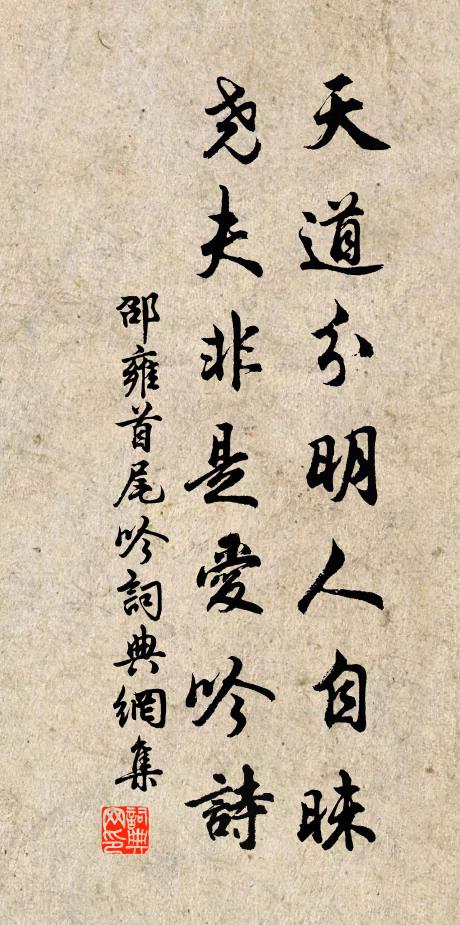 天道分明人自昧
尧夫非是愛吟詩
邵雍首尾吟詞典網集
詞典网印